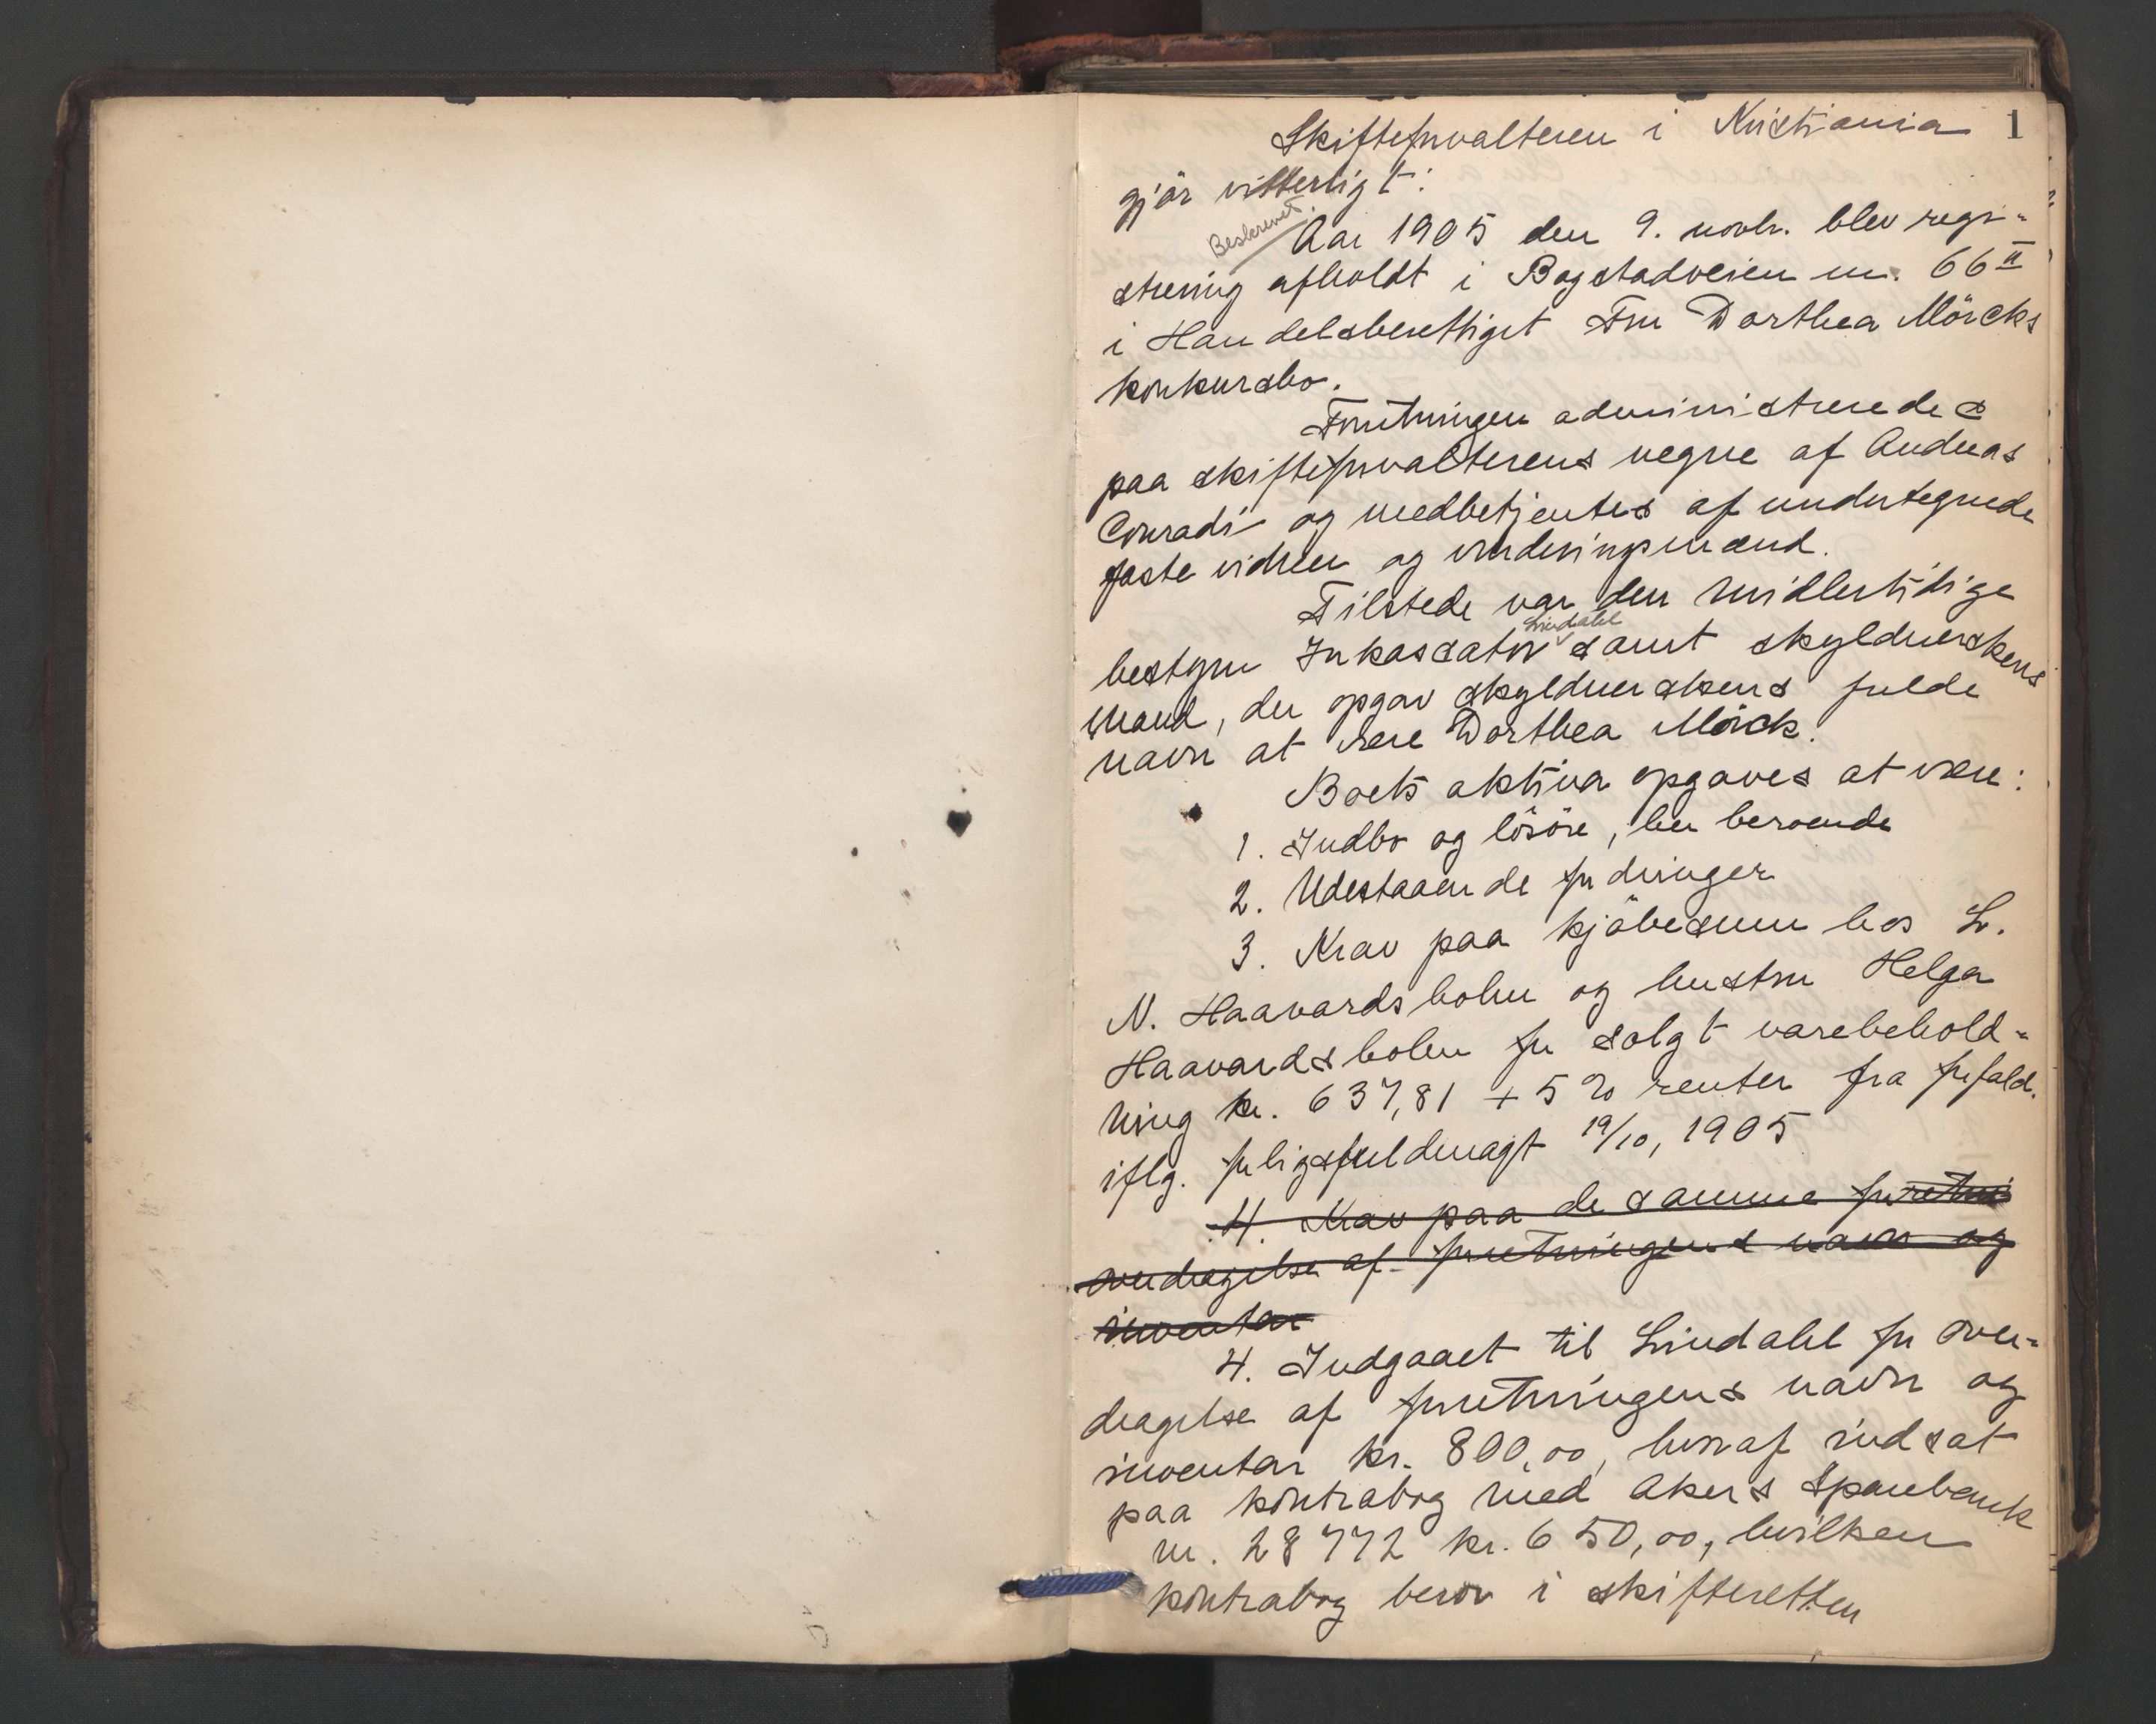 1
Skifteforvalteren i Kristiania
gjör vitterligt:
Beskrevet.
Aar 1905 den 9. novbr. blev regi-
strering afholdt i Bogstadveien nr. 66 II
i Handelsberettiget Fru Dorthea Mörcks
konkursbo.
Forretningen administreredes
paa skifteforvalterens vegne af Andreas
Conradi og medbetjentes af undertegnede
faste vidner og vurderingsmænd.
Tilstede var den midlertidige
bestyrer Inkassator Lindahl samt skyldnerskens
mand, der opgav skyldnerskens fulde
navn at være Dorthea Mörck.
Boets aktiva opgaves at være:
1. Indbo og lösöre, her beroende
2. Udestaaende fordringer
3. Krav paa kjöbesum hos L.
N. Haavardsholm og hustru Helga
Haavardsholm for solgt varebehold-
ning kr. 637,81 + 5 % renter fra forfald.
iflg. forligsfuldmagt 19/10, 1905
4. Krav paa de samme for
overdragelse af forretningens navn og
inventar
4. Indgaaet til Lindahl for over-
dragelse af forretningens navn og
inventar kr. 800,00, hvoraf indsat
paa kontrabog med Akers Sparebank
nr. 28772 kr. 650,00, hvilken
kontrabog beror i skifteretten